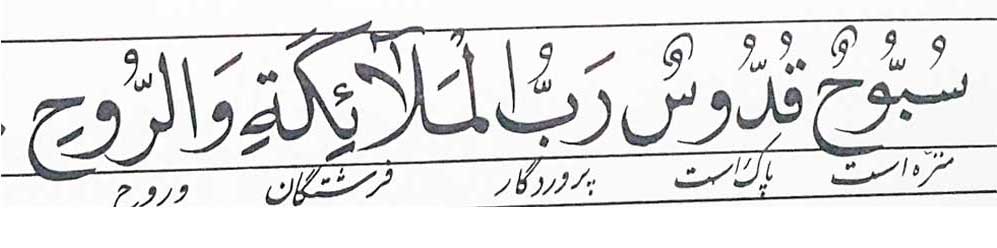 سُبُّوحٌ قُدُّوسٌ رَبُّ الْمَلَآئِكَةِ وَالرُّوحِ
منزّه است پاک است پروردگار فرشتگان وروح